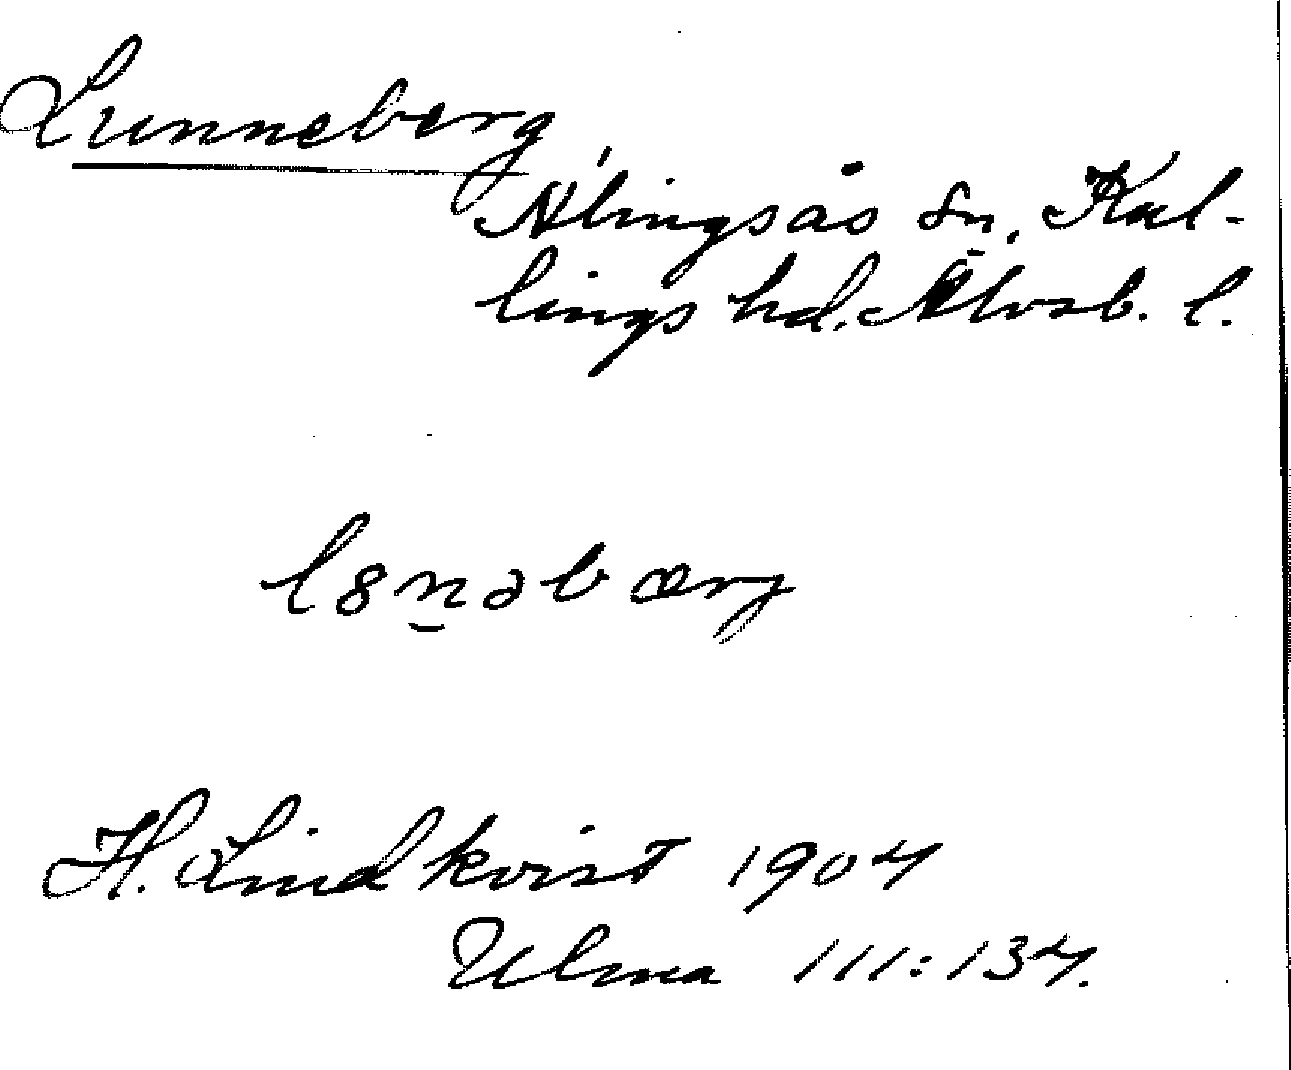 Lunneberg
Alingsås sn, Kul-
lings hd. Älvsb. l.
l8n̠əbærj
H. Lindkvist 1904
Ulma 111:134.